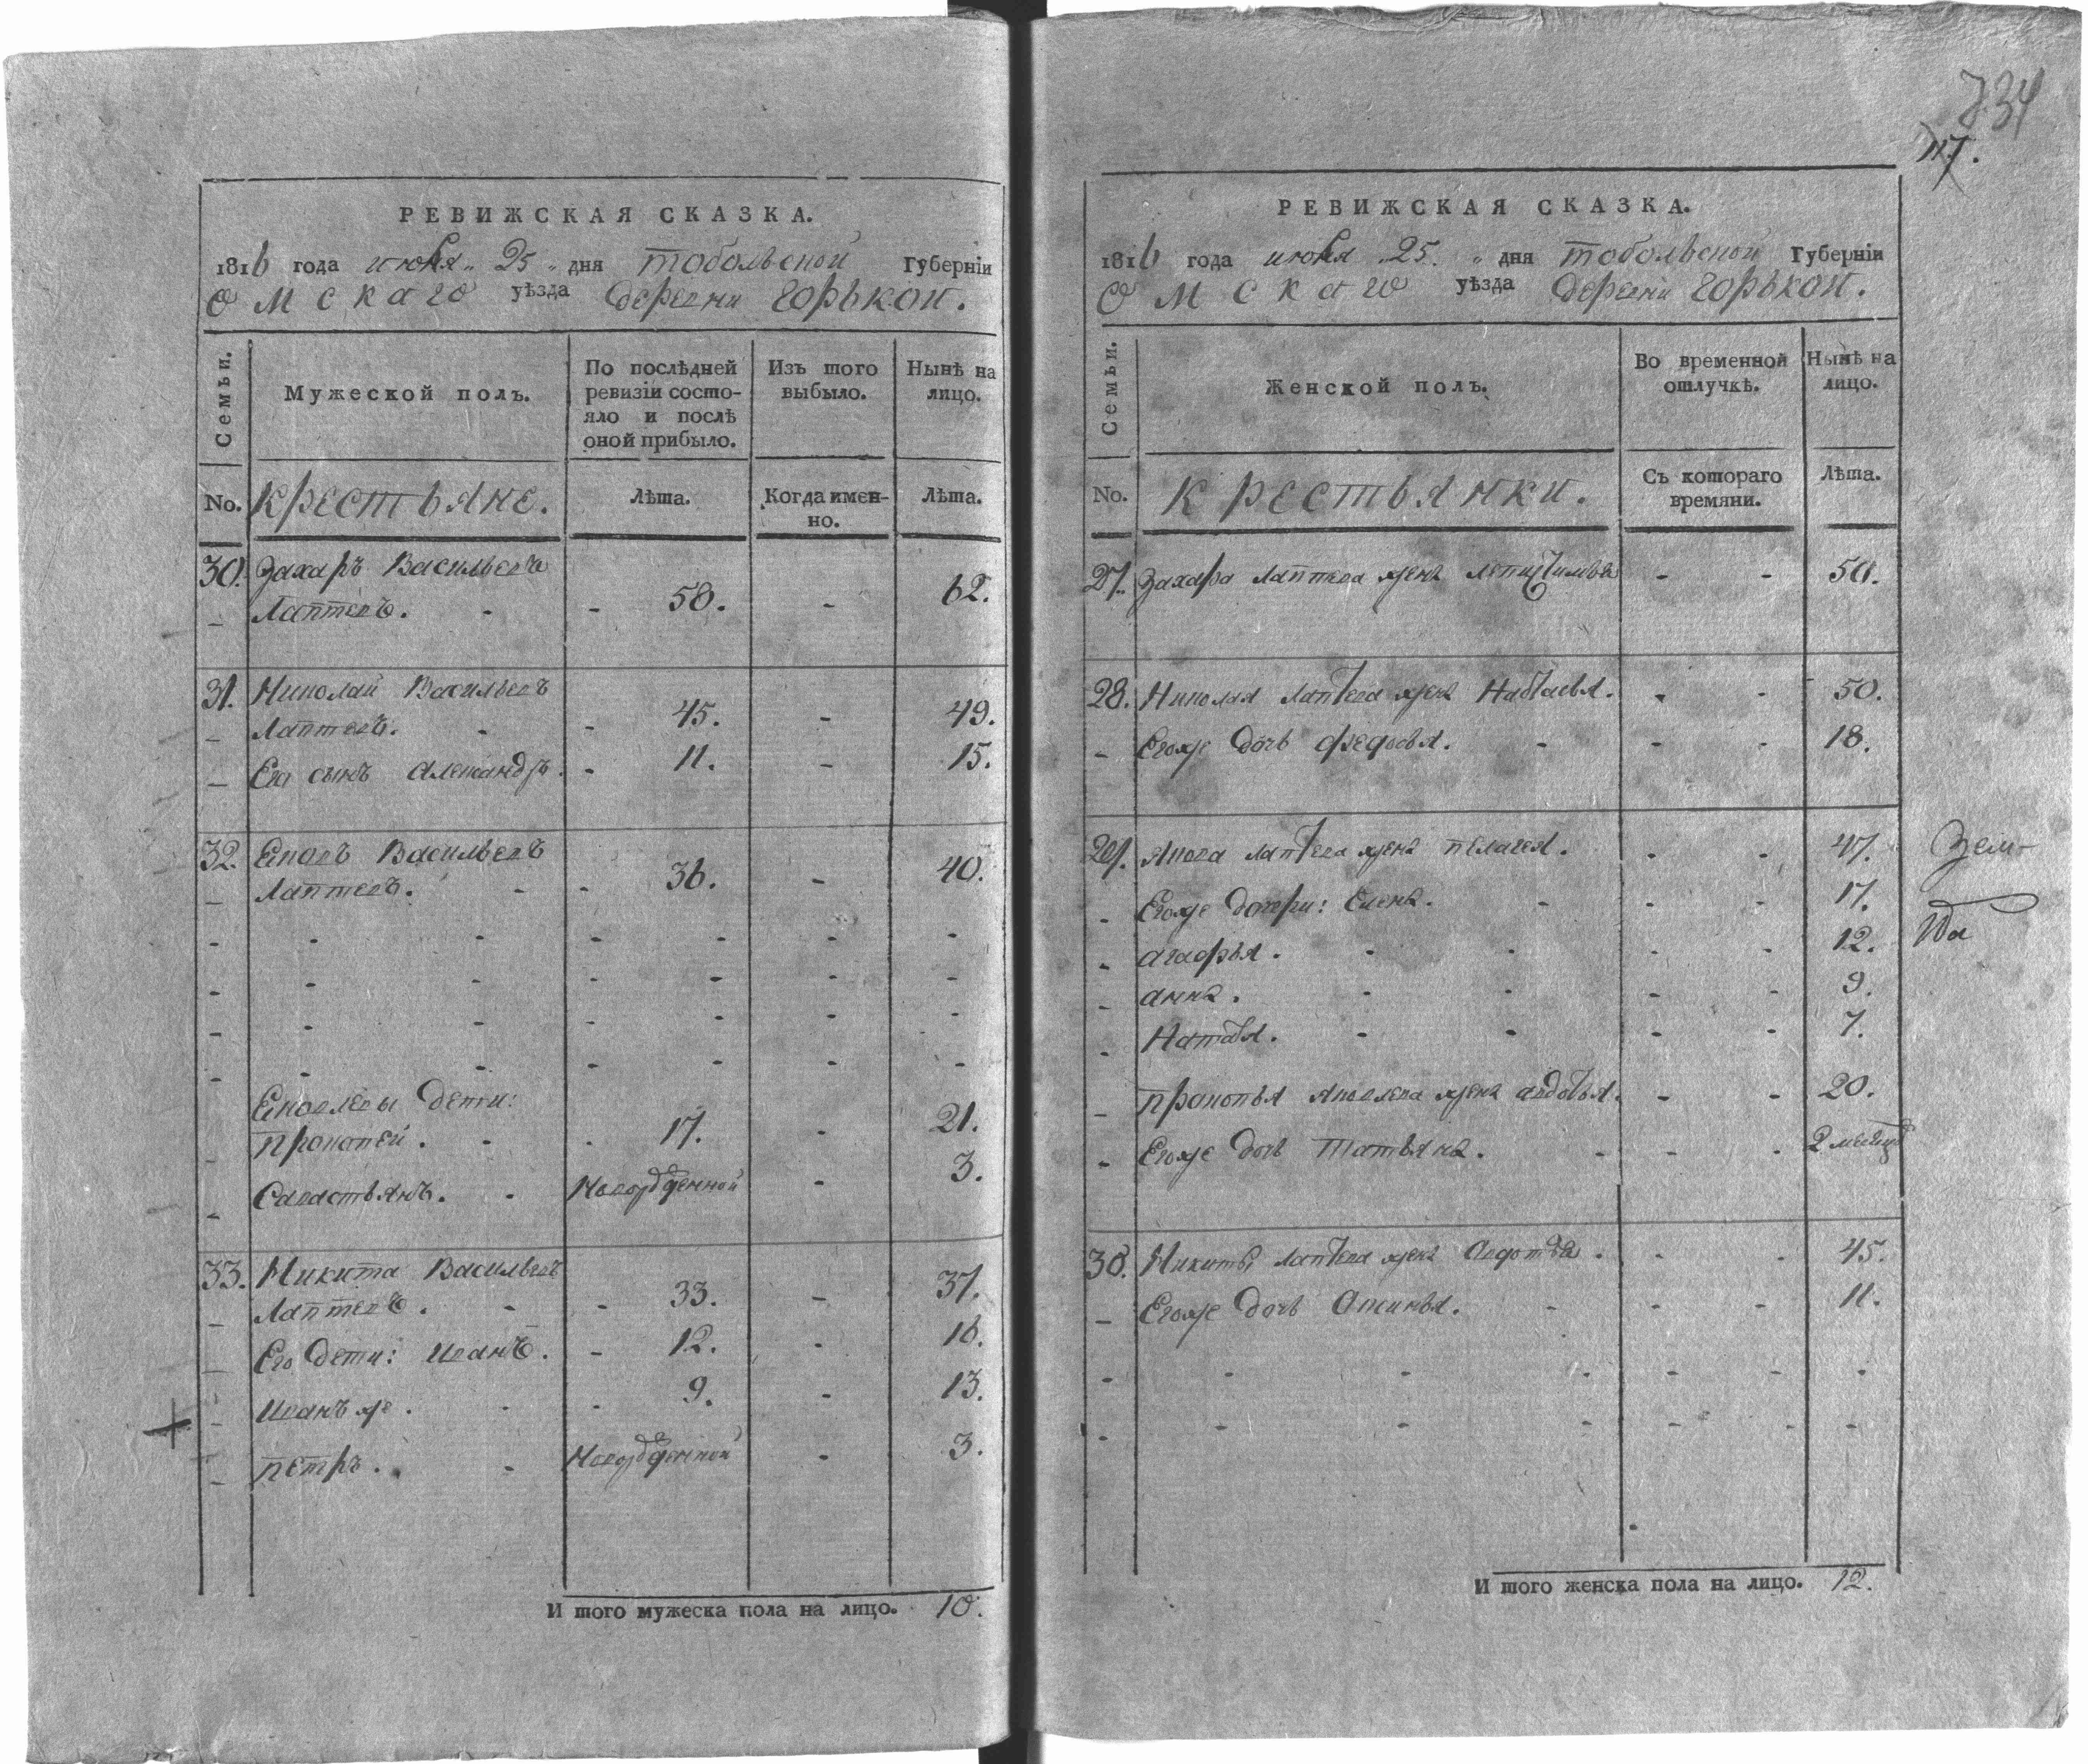 734
117.
РЕВИЖСКАЯ СКАЗКА.
1816 года июня „ 25 „ дня тобольской Губерніи
Омскаго уѣзда деревни Горькой.
Семьи.
Мужеской полъ.
По послѣдней ревизіи состояло и послѣ оной прибыло.
Изъ того выбыло.
Нынѣ на лицо.
No. крестьяне.
Лѣта.
Когда именно.
Лѣта.
30. Захаръ Васильевъ
Лаптевъ. - - 58. - 62.
31. Николай Васильевъ
Лаптевъ. - - 45. - 49.
Его сынъ Александръ. - 11. - 15.
32. Яковъ Васильевъ
Лаптевъ. - - 36. - 40.
Яковлевы дети:
прокопей. - - 17. - 21.
Савастьянъ. - Новорожденной - 3.
33. Никита Васильевъ
Лаптевъ. - - 33. - 37.
Его дети: Иванъ. - 12. - 16.
Иванъ же. - - 9. - 13.
петръ. - Новорожденной - 3.
Итого мужеска пола на лицо. 10.
РЕВИЖСКАЯ СКАЗКА.
1816 года июня „ 25. „ дня тобольской Губерніи
Омскаго уѣзда деревни Горькой.
Семьи.
Женской полъ.
Во временной отлучкѣ.
Нынѣ на лицо.
No. крестьянки.
Съ котораго времяни.
Лѣта.
27. Захара Лаптева жена - - 50.
28. Николая Лаптева жена Настасья. - - 50.
Егоже дочь федосья. - - - 18.
29. Якова Лаптева жена пелагея. - - 47.
Егоже дочери: Елена. - - - 17.
агафья. - - - - 12.
анна. - - - - 9.
Наталья. - - - - 7.
прокопья Яковлева жена авдотья. - - 20.
Егоже дочь татьяна. - - - 2 месяца
30. Никиты Лаптева жена Авдотья. - - 45.
Егоже дочь Аксинья. - - - 11.
Итого женска пола на лицо. 12.